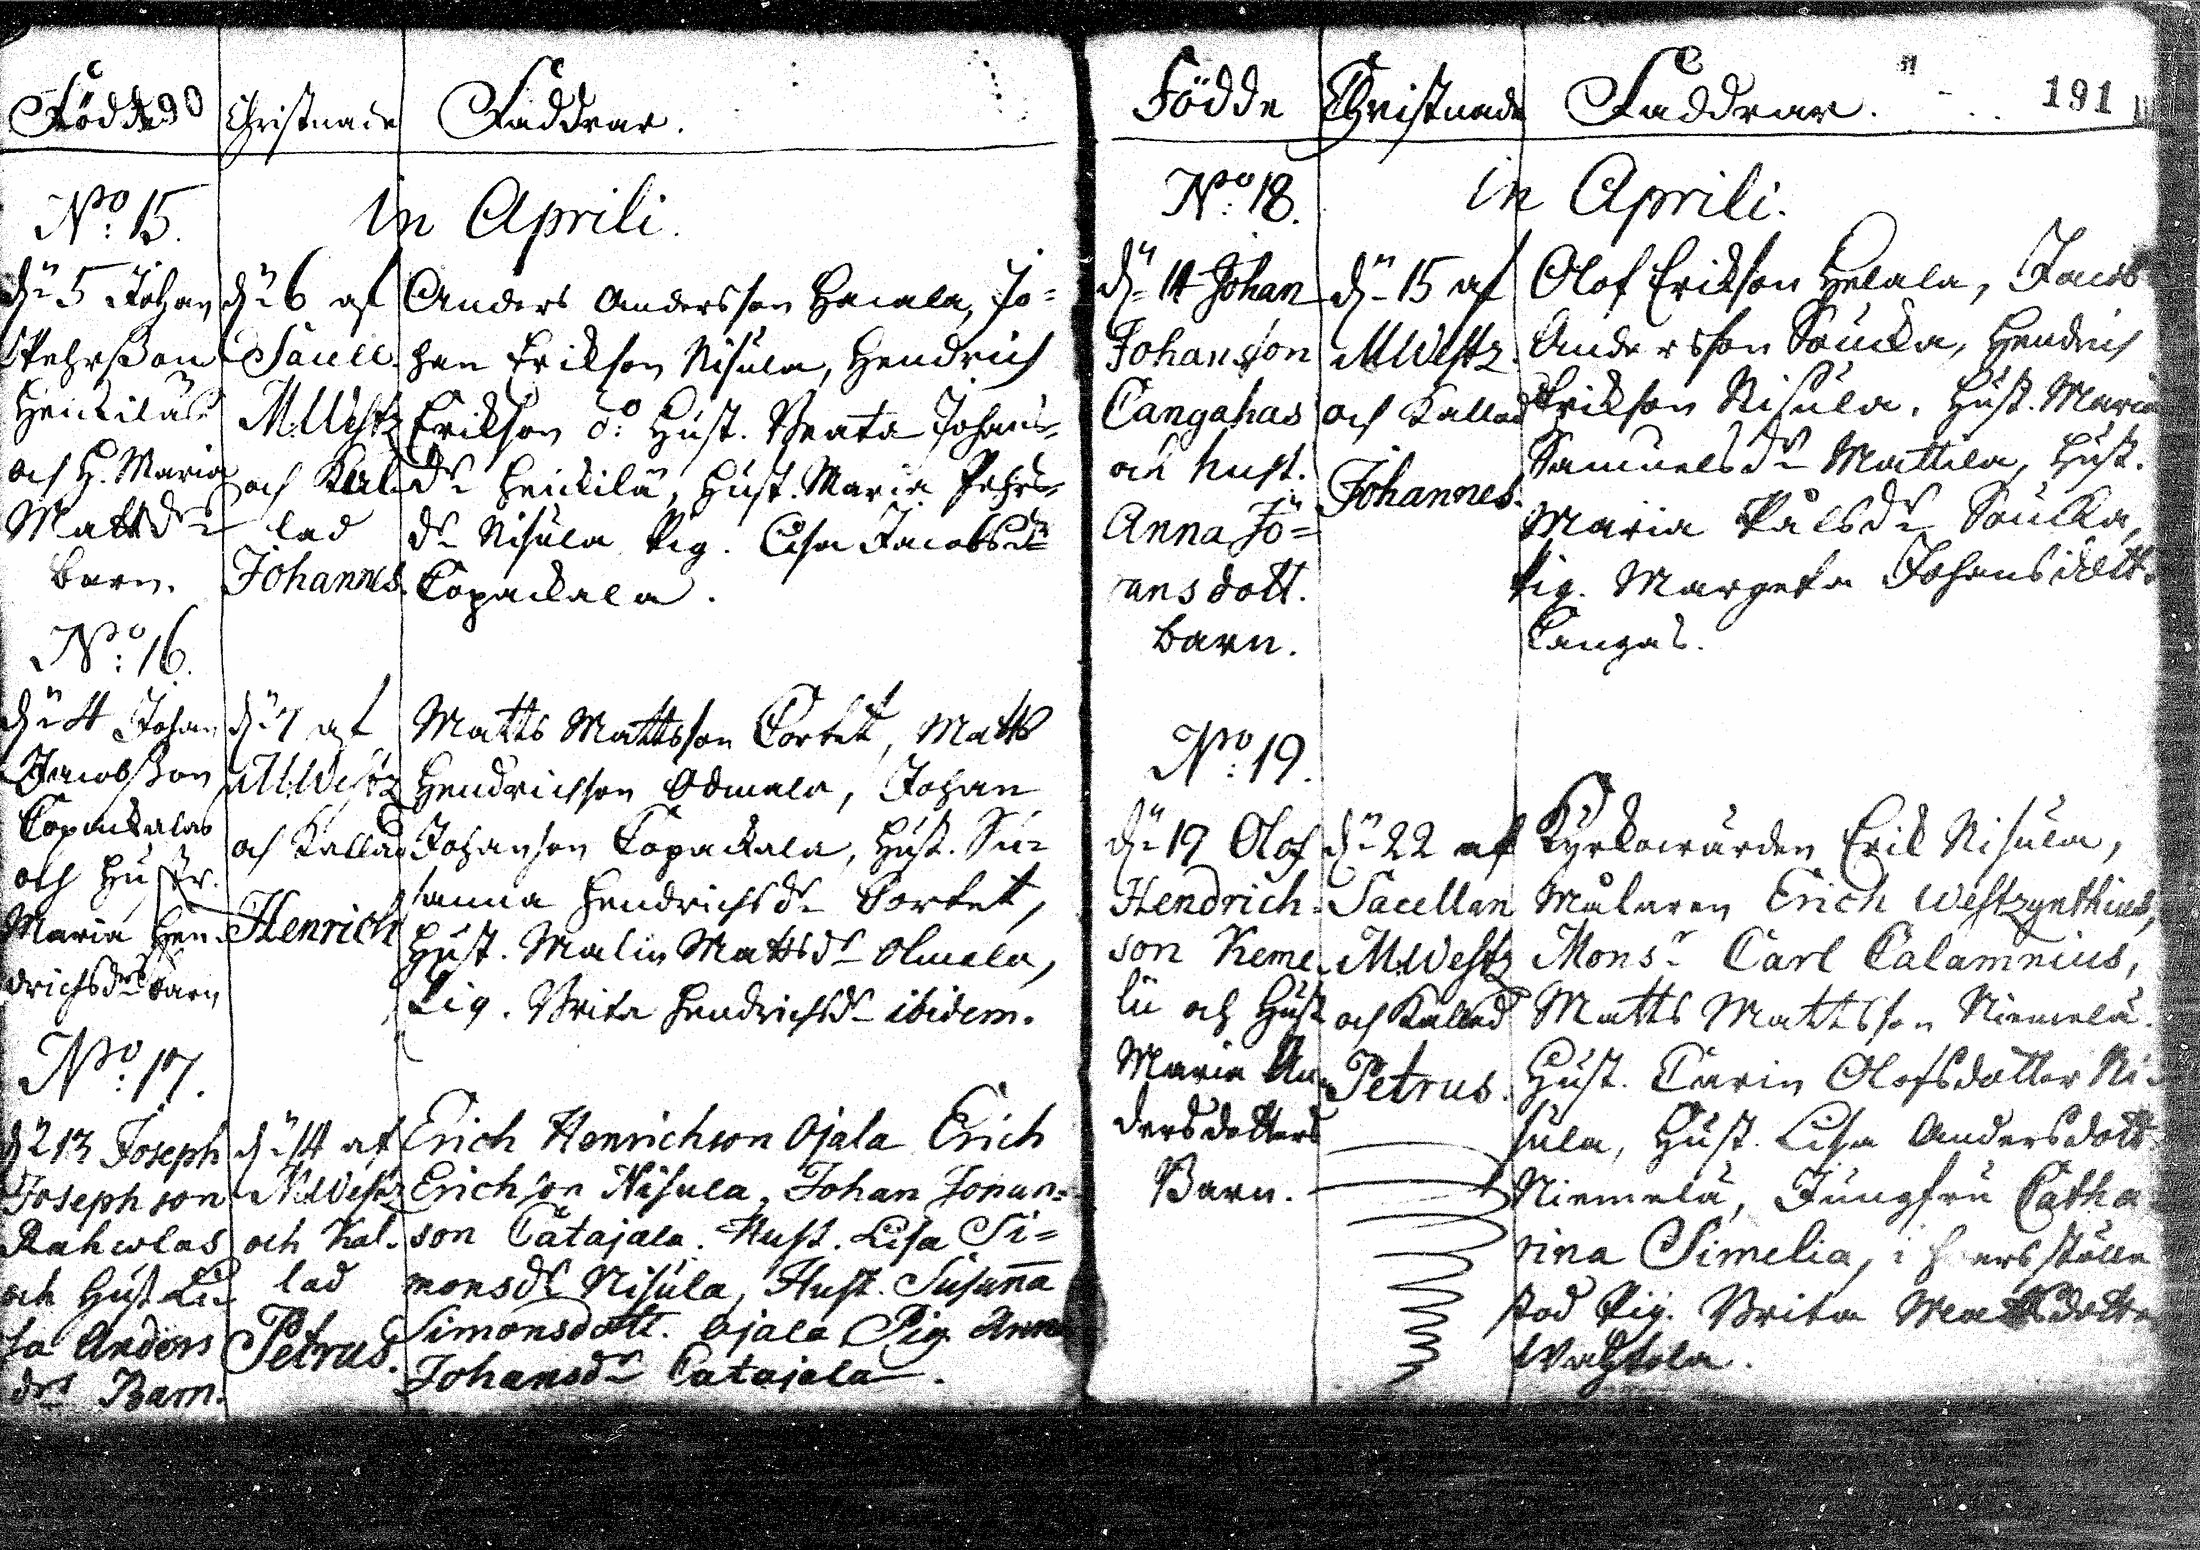 Födde 90 Christnade Faddrar.
in Aprili.
No: 15.
dn 5 Johan
Pehrsson
Heickiläs
och H. Maria
Mattsdrs
barn.
dn 6 af
Sacell.
M.Westz
och Kal
lad
Johannes.
Anders Andersson Haiala, Jo=
han Erikson Nisula, Hendrich
Erikson do: Hust. Beata Johans
dr Heickilä, Hust. Maria Pehrs
dr Nisula Pig. Lisa Jacobsdr
Copackala.
No: 16.
dn 4 Johan
Jacobsson
Copackalas
och Hustr.
Maria Hen
drichsdrs barn
dn 7 af
M.Westz
och Kallad
Henrich
Matts Mattsson Cortet, Matts
Hendrichson Odmala, Johan
Johanson Copackala, Hust. Su=
sanna Hendrichsdr Cortet,
Hust. Malin Mattsdr Olmala,
Pig. Brita Hendrichsdr ibidem.
No: 17.
dn 13 Joseph
Josephson
Rahcolas
och Hust Li
sa Anders
drs Barn.
dn 14 af
M.Westz
och Kal
lad
Petrus.
Erich Henrichson Ojala Erich
Erichson Nisula, Johan Jonan=
son Catajala. Hust. Lisa Si=
monsdr Nisula, Hust. Susanna
Simonsdott. Ojala Pig. Anna
Johansdr Catajala.
Födde Christnade Faddrar. 191
in Aprili.
No: 18.
dn 14 Johan
Johansson
Cangahas
och hust.
Anna Jö=
ransdott.
barn.
dn 15 af
M.Westz.
och Kallad
Johannes.
Olof Erikson Helala, Jacob
Andersson Soucka, Hendrich
Erikson Nisula. Hust. Maria
Samuelsdr Mattila, Hust.
Maria Pålsdr Soucka,
Pig. Margeta Johansdott.
Cangas.
No: 19.
dn 19 Olof
Hendrich
son Keme
lü och Hust
Maria An
dersdotters
Barn.
dn 22 af
Sacellan
M.Westz
och Kallad
Petrus.
Kyrkowärden Erik Nisula,
Målaren Erich Westzynthius,
Monsr Carl Calamnius,
Matts Mattsson Niemelä.
Hust. Carin Olofsdotter Ni=
sula, Hust. Lisa Andersdott.
Niemelä, Jungfru Catha
rina Simelia, i hvars ställe
stod Pig. Brita Mattsdotter